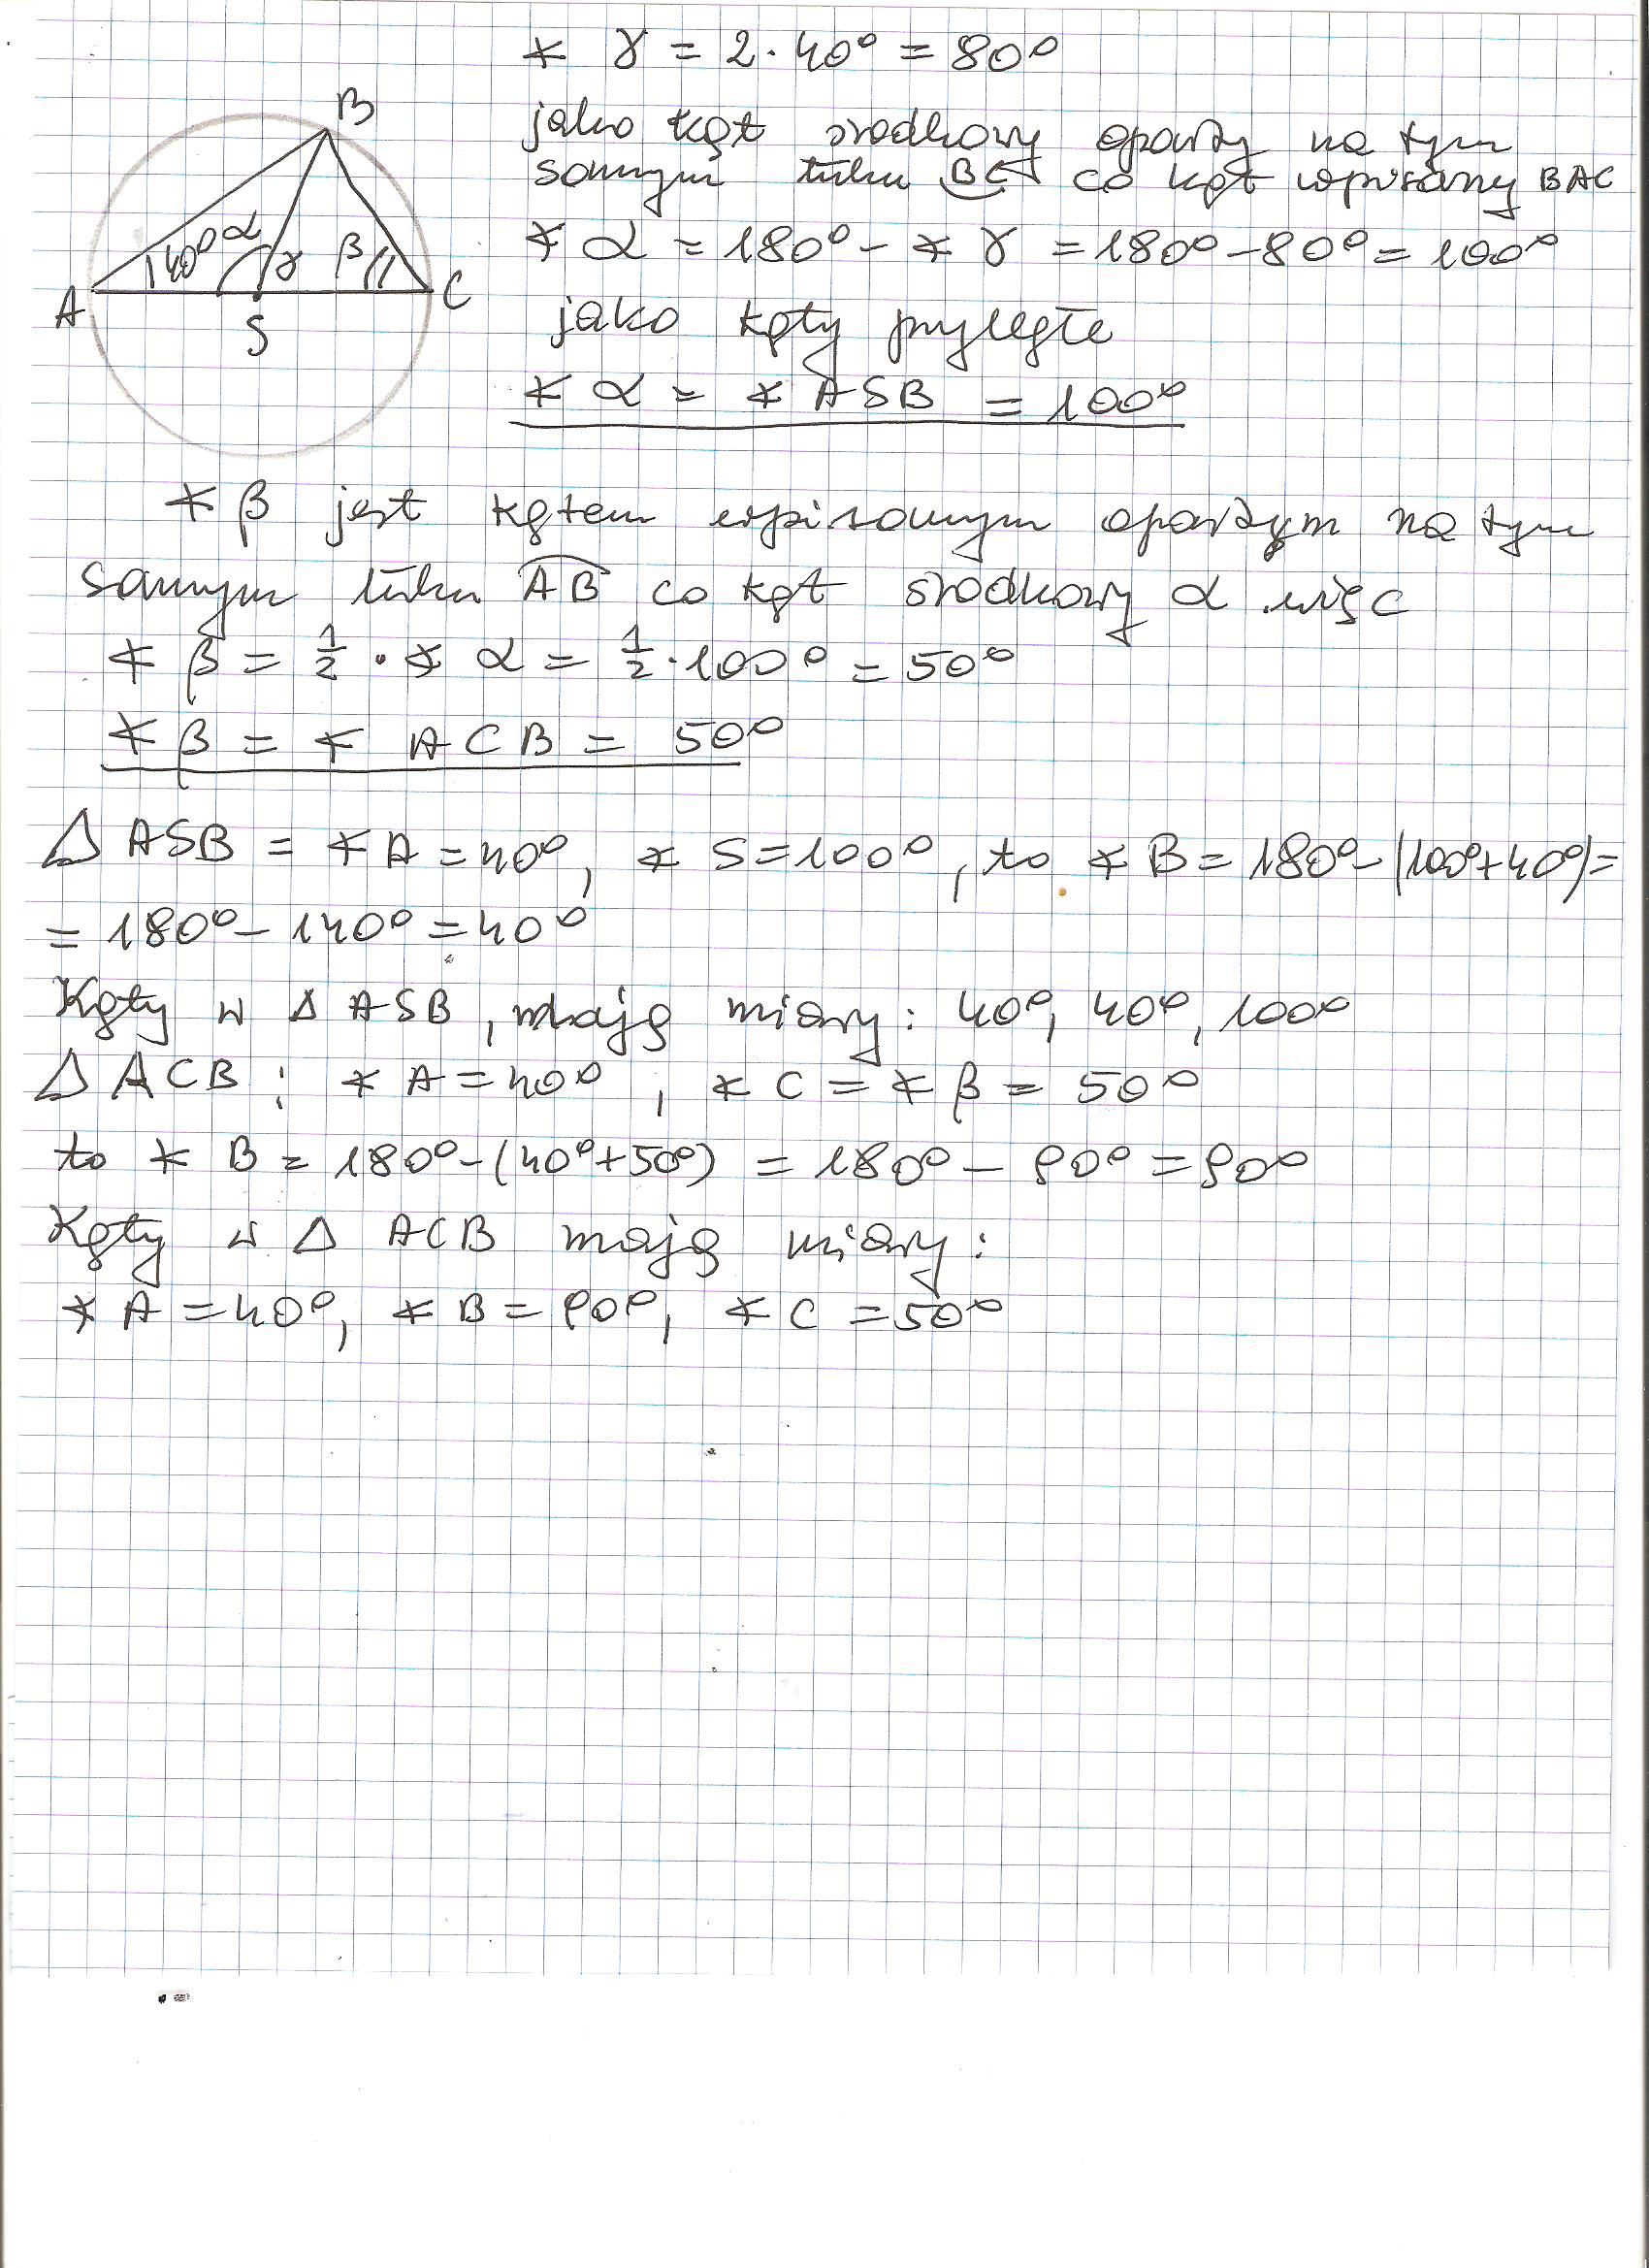 ∢ γ = 2 · 40° = 80°
jako kąt środkowy oparty na tym
samym łuku BC co kąt wpisany BAC
∢ α = 180° - ∢ γ = 180° - 80° = 100°
jako kąty przyległe
∢ α = ∢ ASB = 100°
B
40° α γ β
A S C
∢ β jest kątem wpisanym opartym na tym
samym łuku AB co kąt środkowy α więc
∢ β = 1/2 · ∢ α = 1/2 · 100° = 50°
∢ β = ∢ ACB = 50°
Δ ASB = ∢ A = 40°, ∢ S = 100°, to ∢ B = 180° - (100° + 40°) =
= 180° - 140° = 40°
Kąty w Δ ASB, mają miary: 40°, 40°, 100°
Δ ACB : ∢ A = 40°, ∢ C = ∢ β = 50°
to ∢ B = 180° - (40° + 50°) = 180° - 90° = 90°
Kąty w Δ ACB mają miary:
∢ A = 40°, ∢ B = 90°, ∢ C = 50°